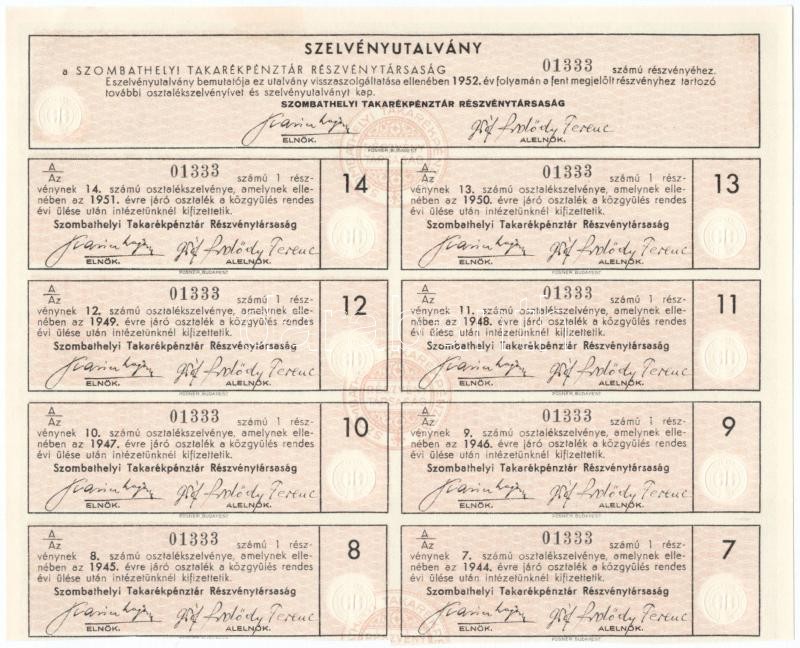 SZELVÉNYUTALVÁNY
a SZOMBATHELYI TAKARÉKPÉNZTÁR RÉSZVÉNYTÁRSASÁG 01333 számú részvényéhez.
E szelvényutalvány bemutatója ez utalvány visszaszolgáltatása ellenében 1952. év folyamán a fent megjelölt részvényhez tartozó
további osztalékszelvényívet és szelvényutalványt kap.
SZOMBATHELYI TAKARÉKPÉNZTÁR RÉSZVÉNYTÁRSASÁG
ELNÖK. ALELNÖK.
POSNER, BUDAPEST
A/Az 01333 számú 1 rész-
vénynek 14. számú osztalékszelvénye, amelynek elle-
nében az 1951. évre járó osztalék a közgyülés rendes
évi ülése után intézetünknél kifizettetik.
Szombathelyi Takarékpénztár Részvénytársaság
ELNÖK. ALELNÖK.
14
POSNER, BUDAPEST
A/Az 01333 számú 1 rész-
vénynek 13. számú osztalékszelvénye, amelynek elle-
nében az 1950. évre járó osztalék a közgyülés rendes
évi ülése után intézetünknél kifizettetik.
Szombathelyi Takarékpénztár Részvénytársaság
ELNÖK. ALELNÖK.
13
POSNER, BUDAPEST
A/Az 01333 számú 1 rész-
vénynek 12. számú osztalékszelvénye, amelynek elle-
nében az 1949. évre járó osztalék a közgyülés rendes
évi ülése után intézetünknél kifizettetik.
Szombathelyi Takarékpénztár Részvénytársaság
ELNÖK. ALELNÖK.
12
POSNER, BUDAPEST
A/Az 01333 számú 1 rész-
vénynek 11. számú osztalékszelvénye, amelynek elle-
nében az 1948. évre járó osztalék a közgyülés rendes
évi ülése után intézetünknél kifizettetik.
Szombathelyi Takarékpénztár Részvénytársaság
ELNÖK. ALELNÖK.
11
POSNER, BUDAPEST
A/Az 01333 számú 1 rész-
vénynek 10. számú osztalékszelvénye, amelynek elle-
nében az 1947. évre járó osztalék a közgyülés rendes
évi ülése után intézetünknél kifizettetik.
Szombathelyi Takarékpénztár Részvénytársaság
ELNÖK. ALELNÖK.
10
POSNER, BUDAPEST
A/Az 01333 számú 1 rész-
vénynek 9. számú osztalékszelvénye, amelynek elle-
nében az 1946. évre járó osztalék a közgyülés rendes
évi ülése után intézetünknél kifizettetik.
Szombathelyi Takarékpénztár Részvénytársaság
ELNÖK. ALELNÖK.
9
POSNER, BUDAPEST
A/Az 01333 számú 1 rész-
vénynek 8. számú osztalékszelvénye, amelynek elle-
nében az 1945. évre járó osztalék a közgyülés rendes
évi ülése után intézetünknél kifizettetik.
Szombathelyi Takarékpénztár Részvénytársaság
ELNÖK. ALELNÖK.
8
POSNER, BUDAPEST
A/Az 01333 számú 1 rész-
vénynek 7. számú osztalékszelvénye, amelynek elle-
nében az 1944. évre járó osztalék a közgyülés rendes
évi ülése után intézetünknél kifizettetik.
Szombathelyi Takarékpénztár Részvénytársaság
ELNÖK. ALELNÖK.
7
POSNER, BUDAPEST